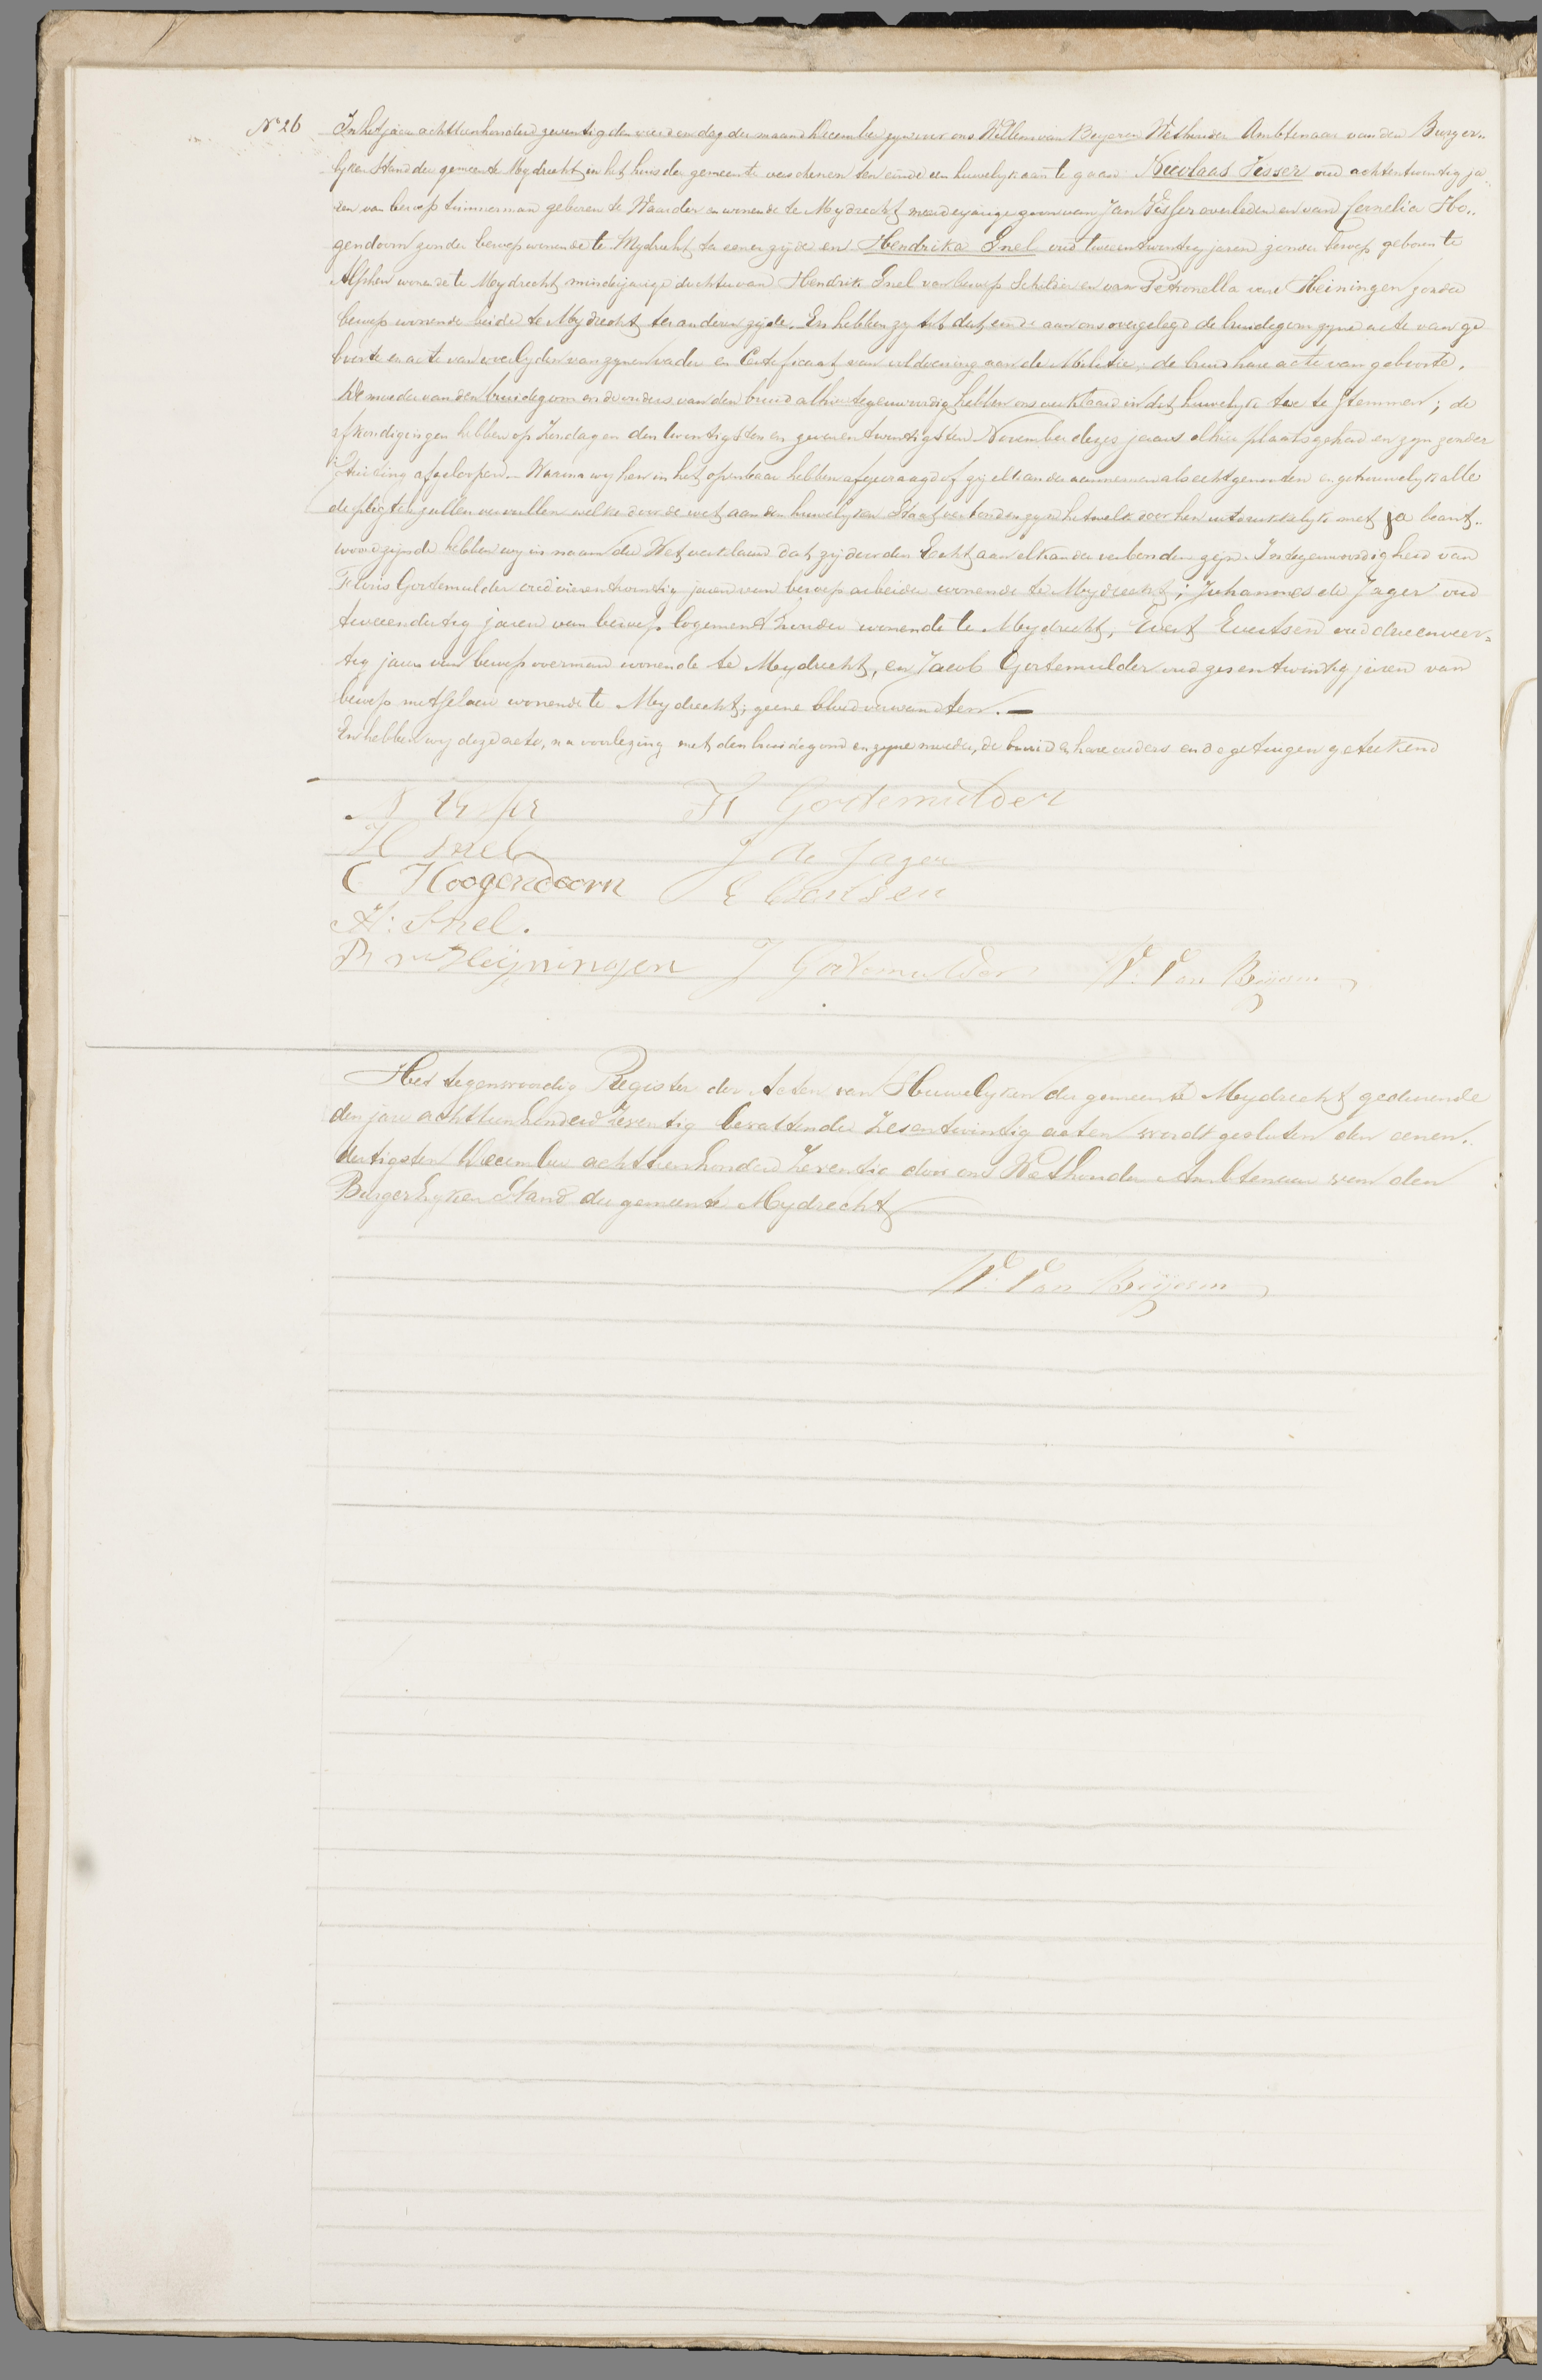 No 26
In het jaar achttienhonderd zeventig den vierden dag der maand December zyn voor ons Willem van Beyeren Wethouder Ambtenaar van den Burger„
lyken Stand der gemeente Mydrecht in het huis der gemeente verschenen ten einde een huwelyk aan te gaan Nicolaas Visser oud achtentwintig ja„
ren van beroep timmerman geboren te Waarder en wonende te Mydrecht meerderjarige zoon van Jan Visser overleden en van Cornelia Ho„
gendoorn zonder beroep wonende te Mydrecht ter eener zyde en Hendrika Snel oud tweeentwintig jaren zonder beroep geboren te
Alphen wonende te Mydrecht minderjarige dochter van Hendrik Snel van beroep Schilder en van Petronella van Heiningen zonder
beroep wonende beide te Mydrecht ter anderen zyde. En hebben zy tot dat einde aan ons overgelegd de bruidegom zyne acte van ge
boorte en acte van overlyden van zynen vader en Certificaat van voldoening aan de Militie, de bruid hare acte van geboorte.
De moeder van den bruidegom en de ouders van den bruid alhier tegenwoordig hebben ons verklaard in dit huwelyk toe te stemmen; de
afkondigingen hebben op Zondagen den twintigsten en zevenentwintigsten November dezes jaars alhier plaats gehad en zyn zonder
stuiting afgeloopen. Waarna wy hen in het openbaar hebben afgevraagd of zy elkander aannemen als echtgenooten en getrouwelyk alle
de pligten zullen vervullen welke door de wet aan den huwelyken Staat verbonden zyn hetwelk door hen uitdrukkelyk met ja beant„
woord zynde hebben wy in naam der Wet verklaard dat zy door den Echt aan elkander verbonden zyn. In tegenwoordigheid van
Floris Gortemulder oud vierentwintig jaren van beroep arbeider wonende te Mydrecht; Johannes de Jager oud
tweeendertig jaren van beroep logementhouder wonende te Mydrecht, Evert Evertsen oud drieenveer„
tig jaren van beroep voerman wonende te Mydrecht, en Jacob Gortemulder oud zesentwintig jaren van
beroep metselaar wonende te Mydrecht; geene bloedverwandten.
En hebben wy deze acte, na voorlezing met den bruidegom en zyne moeder, de bruid & hare ouders en de getuigen geteekend
N Visser Fl Gortemulder
H Snel J de Jager
C Hoogendoorn E Evertsen
H: Snel.
P. v Heijningen J Gortemulder W: Van Beijeren
Het tegenwoordig Register der Acten van Huwelyken der gemeente Mydrecht gedurende
den jare achttienhonderd Zeventig bevattende Zesentwintig acten wordt gesloten den eenen„
dertigsten December achttienhonderd Zeventig door ons Wethouder Ambtenaar van den
Burgerlyken Stand der gemeente Mydrecht
W: Van Beijeren